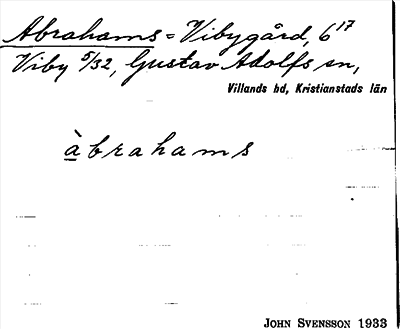 Abrahams = Vibygård, 6¹⁷
Viby 5/32, Gustav Adolfs sn,
Villands hd, Kristianstads län
àbrahams
JOHN SVENSSON 1933